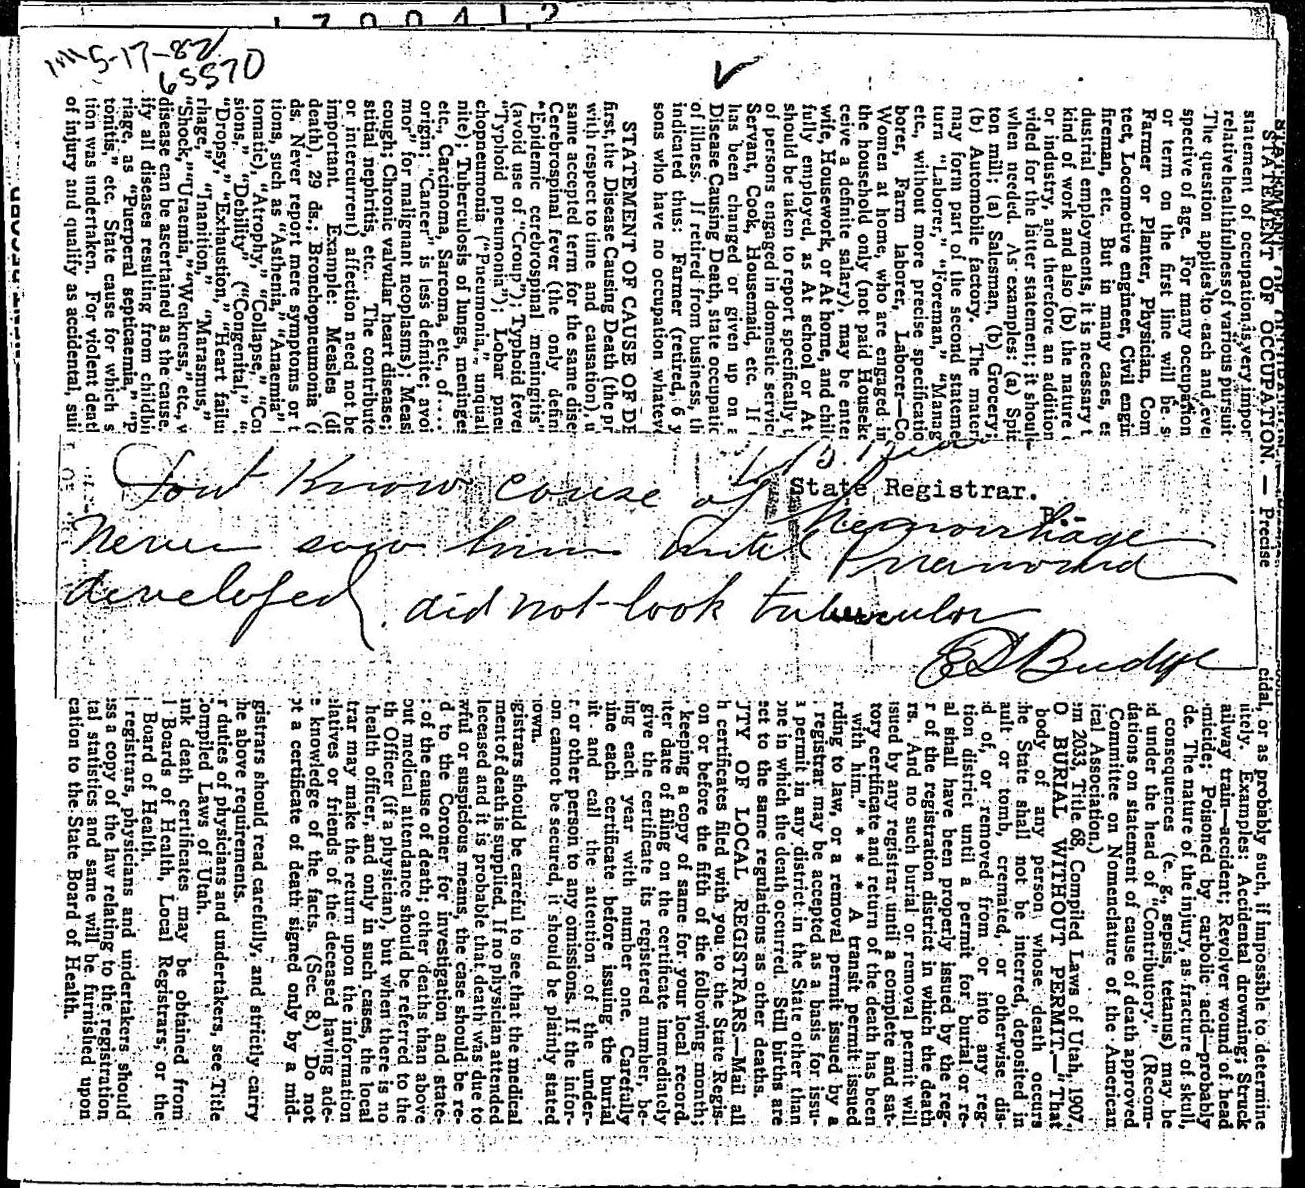 5-17-82
65570
STATEMENT OF OCCUPATION. — Precise
statement of occupation is very impor
relative healthfulness of various pursuit
The question applies to each and eve
spective of age. For many occupation
or term on the first line will be s
Farmer or Planter, Physician, Com
tect, Locomotive engineer, Civil engin
fireman, etc. But in many cases, es
dustrial employments, it is necessary t
kind of work and also (b) the nature
or industry, and therefore an addition
vided for the latter statement; it shoul
when needed. As examples: (a) Spi
ton mill; (a) Salesman, (b) Grocery;
(b) Automobile factory. The materi
may form part of the second stateme
turn "Laborer," "Foreman," "Manag
etc., without more precise specificatio
borer, Farm laborer, Laborer—Co
Women at home, who are engaged in
the household only (not paid Houseke
ceive a definite salary), may be ente
wife, Housework, or At home, and chil
fully employed, as At school or At
should be taken to report specifically
of persons engaged in domestic servic
Servant, Cook, Housemaid, etc. If
has been changed or given up on a
Disease Causing Death, state occupati
of illness. If retired from business, th
indicated thus: Farmer (retired, 6 y
sons who have no occupation whatev
STATEMENT OF CAUSE OF DE
first, the Disease Causing Death (the pr
with respect to time and causation), u
same accepted term for the same dise
Cerebrospinal fever (the only defini
"Epidemic cerebrospinal meningitis"
(avoid use of "Croup"); Typhoid feve
"Typhoid pneumonia"); Lobar pneu
chopneumonia ("Pneumonia," unquali
nite); Tuberculosis of lungs, meninge
etc., Carcinoma, Sarcoma, etc., of....
origin; "Cancer" is less definite; avoi
mor" for malignant neoplasms); Measl
cough; Chronic valvular heart disease;
stitial nephritis, etc. The contributo
or intercurrent) affection need not be
important. Example: Measles (di
death), 29 ds.; Bronchopneumonia (
ds. Never report mere symptoms or t
tions, such as "Asthenia," "Anaemia"
tomatic), "Atrophy," "Collapse," "Co
sions," "Debility" ("Congenital,"
"Dropsy," "Exhaustion," "Heart failu
rhage," "Inanition," "Marasmus,"
"Shock," "Uraemia," "Weakness," etc., w
disease can be ascertained as the cause.
ify all diseases resulting from childbi
riage, as "Puerperal septicaemia," "P
tonitis," etc. State cause for which s
tion was undertaken. For violent deat
of injury and qualify as accidental, sui
State Registrar.
Dont Know couse of Hemorrhage
Never saw him until Pneumonia
developed, did not look tubercular
E D Budge
cidal, or as probably such, if impossible to determine
itely. Examples: Accidental drowning; Struck
ailway train—accident; Revolver wound of head
micide; Poisoned by carbolic acid—probably
de. The nature of the injury, as fracture of skull,
consequences (e. g., sepsis, tetanus) may be
d under the head of "Contributory." (Recom-
dations on statement of cause of death approved
Committee on Nomenclature of the American
ical Association.)
em 2033, Title 68, Compiled Laws of Utah, 1907.
O BURIAL WITHOUT PERMIT.—"That
body of any person whose death occurs
the State shall not be interred, deposited in
ault or tomb, cremated, or otherwise dis-
d of, or removed from or into any reg-
tion district until a permit for burial or re-
al shall have been properly issued by the reg-
r of the registration district in which the death
rs. And no such burial or removal permit will
issued by any registrar until a complete and sat-
tory certificate and return of the death has been
with him." * * * A transit permit issued
rding to law, or a removal permit issued by a
registrar may be accepted as a basis for issu-
a permit in any district in the State other than
one in which the death occurred. Still births are
ect to the same regulations as other deaths.
UTY OF LOCAL REGISTRARS—Mail all
h certificates filed with you to the State Regis-
on or before the fifth of the following month;
keeping a copy of same for your local record.
nter date of filing on the certificate immediately
give the certificate its registered number, be-
ing each year with number one. Carefully
ine each certificate before issuing the burial
it and call the attention of the under-
r or other person to any omissions. If the infor-
on cannot be secured, it should be plainly stated
nown.
gistrars should be careful to see that the medical
ment of death is supplied. If no physician attended
leceased and it is probable that death was due to
wful or suspicious means, the case should be re-
d to the Coroner for investigation and state-
of the cause of death; other deaths than above
out medical attendance should be referred to the
th Officer (if a physician), but when there is no
health officer, and only in such cases, the local
trar may make the return upon the information
elatives or friends of the deceased having ade-
e knowledge of the facts. (Sec. 8.) Do not
pt a certificate of death signed only by a mid-
gistrars should read carefully, and strictly carry
he above requirements.
r duties of physicians and undertakers, see Title
Compiled Laws of Utah.
ink death certificates may be obtained from
Boards of Health, Local Registrars, or the
Board of Health.
l registrars, physicians and undertakers should
ss a copy of the law relating to the registration
tal statistics and same will be furnished upon
cation to the State Board of Health.